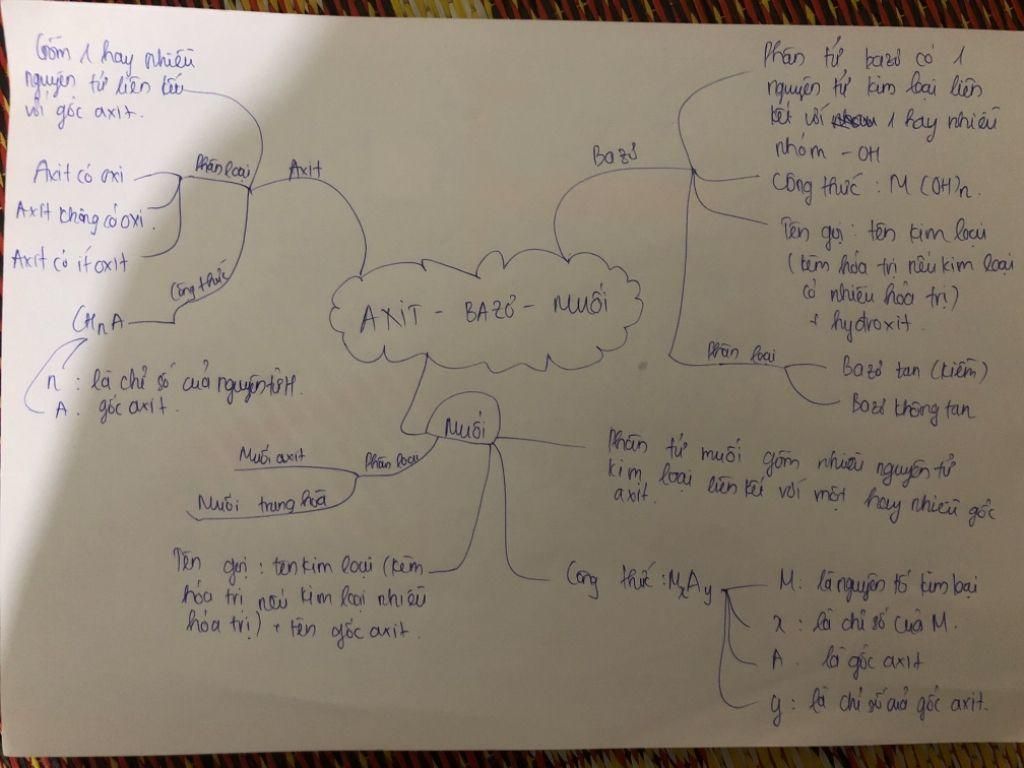 Gồm 1 hay nhiều
nguyên tử liên kết
với gốc axit.
Phân loại
Axit
Axit có oxi
Axit không có oxi.
Axit có ít oxit
Công thức
CHnA
n : là chỉ số của nguyên tử H.
A . gốc axit.
AXIT - BAZƠ - MUỐI
Bazơ
Phân tử bazơ có 1
nguyên tử kim loại liên
kết với 1 hay nhiều
nhóm - OH
Công thức : M(OH)n.
Tên gọi : tên kim loại
(kèm hóa trị nếu kim loại
có nhiều hóa trị)
+ hydroxit.
Phân loại
Bazơ tan (kiềm)
Bazơ không tan
Muối
Phân loại
Muối axit
Muối trung hoà
Phân tử muối gồm nhiều nguyên tử
kim loại liên kết với một hay nhiều gốc
axit.
Tên gọi : tên kim loại (kèm
hóa trị nếu kim loại nhiều
hóa trị) + tên gốc axit.
Công thức : MxAy
M : là nguyên tố kim loại
x : là chỉ số của M.
A . là gốc axit
y : là chỉ số của gốc axit.